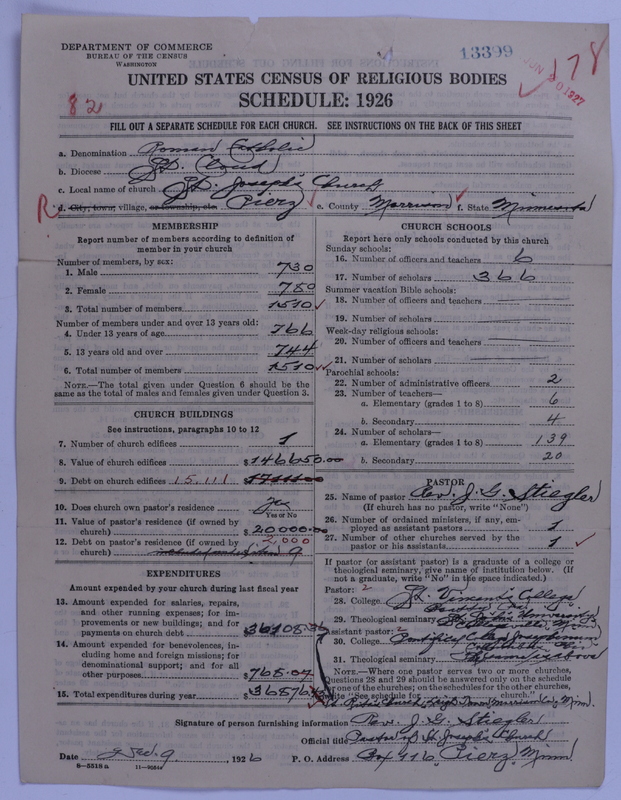 DEPARTMENT OF COMMERCE
BUREAU OF THE CENSUS
WASHINGTON
13399
178
JUN 1927
82
UNITED STATES CENSUS OF RELIGIOUS BODIES
SCHEDULE: 1926
FILL OUT A SEPARATE SCHEDULE FOR EACH CHURCH. SEE INSTRUCTIONS ON THE BACK OF THIS SHEET
a. Denomination Roman Catholic
b. Diocese St. Cloud
c. Local name of church St. Joseph's Church
R d. City, town, village, or township, etc. Pierz e. County Morrison f. State Minnesota
MEMBERSHIP
Report number of members according to definition of
member in your church
Number of members, by sex:
1. Male 730
2. Female 780
3. Total number of members 1510
Number of members under and over 13 years old:
4. Under 13 years of age 766
5. 13 years old and over 744
6. Total number of members 1510
NOTE.—The total given under Question 6 should be
same as the total of males and females given under Question 3.
CHURCH BUILDINGS
See instructions, paragraphs 10 to 12
7. Number of church edifices 1
8. Value of church edifices $146650.00
9. Debt on church edifices 15,111 $
10. Does church own pastor's residence yes
Yes or No
11. Value of pastor's residence (if owned by
church) $20000.00
12. Debt on pastor's residence (if owned by
church) 2,000 included in 9
EXPENDITURES
Amount expended by your church during last fiscal year
13. Amount expended for salaries, repairs,
and other running expenses; for im-
provements or new buildings; and for
payments on church debt $36108.
14. Amount expended for benevolences, in-
cluding home and foreign missions; for
denominational support; and for all
other purposes $768.07
15. Total expenditures during year $
CHURCH SCHOOLS
Report here only schools conducted by this church
Sunday schools:
16. Number of officers and teachers 6
17. Number of scholars 366
Summer vacation Bible schools:
18. Number of officers and teachers
19. Number of scholars
Week-day religious schools:
20. Number of officers and teachers
21. Number of scholars
Parochial schools:
22. Number of administrative officers 2
23. Number of teachers—
a. Elementary (grades 1 to 8) 6
b. Secondary 4
24. Number of scholars—
a. Elementary (grades 1 to 8) 139
b. Secondary 20
PASTOR
25. Name of pastor Rev. J. G. Stiegler
(If church has no pastor, write "None")
26. Number of ordained ministers, if any, em-
ployed as assistant pastors 1
27. Number of other churches served by the
pastor or his assistants 1
If pastor (or assistant pastor) is a graduate of a college or
theological seminary, give name of institution below. (If
not a graduate, write "No" in the space indicated.)
Pastor: 2
28. College St. Vincent's College
29. Theological seminary St. John's University
Assistant pastor: 2
30. College Pontifical College Josephinum
31. Theological seminary Same as above
NOTE.—Where one pastor serves two or more churches,
Questions 28 and 29 should be answered only on the schedule
for one of the churches; on the schedules for the other churches,
write "See schedule for church."
Signature of person furnishing information Rev. J. G. Stiegler
Official title Pastor of St. Joseph's Church
Date Dec. 9, 1926 P. O. Address Box 116 Pierz, Minn.
8—5518 a 11—9051